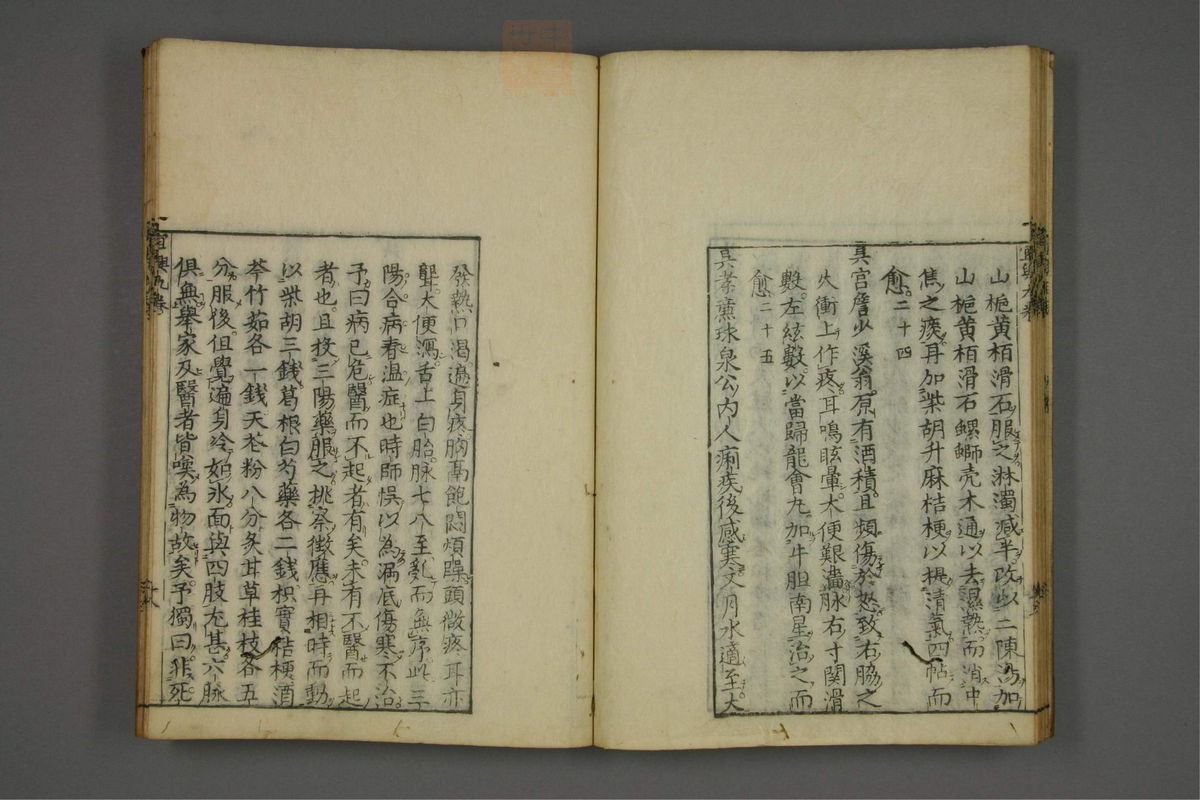 山梔黄栢滑石服之淋濁減半改以二陳湯加
山梔黄栢滑石螺螄壳木通以去濕熱而消中
焦之痰再加柴胡升麻桔梗以提清氣四帖而
愈二十四
吳宮詹少溪翁原有酒積且頻傷於怒致右脇之
火衝上作疼耳鳴眩暈大便艱濇脉右寸関滑
數左絃數以當歸龍會丸加牛胆南星治之而
愈二十五
吳孝廉珠泉公内人痢疾後感寒又月水適至大
發熱口渴遍身疼胸鬲飽悶煩躁頭微疼耳亦
聾大便瀉舌上白胎脉七八至亂而無序此三
陽合病春温症也時師悞以為漏底傷寒不治
予曰病已危醫而不起者有矣未有不醫而起
者也且投三陽藥服之挑察徵應再相時而動
以柴胡三錢葛根白芍藥各二錢枳實桔梗酒
芩竹茹各一錢天花粉八分炙甘草桂枝各五
分服後但覺遍身冷如氷面與四肢尤甚六脉
俱無舉家及醫者皆嘆為物故矣予獨曰非死
宜興九卷